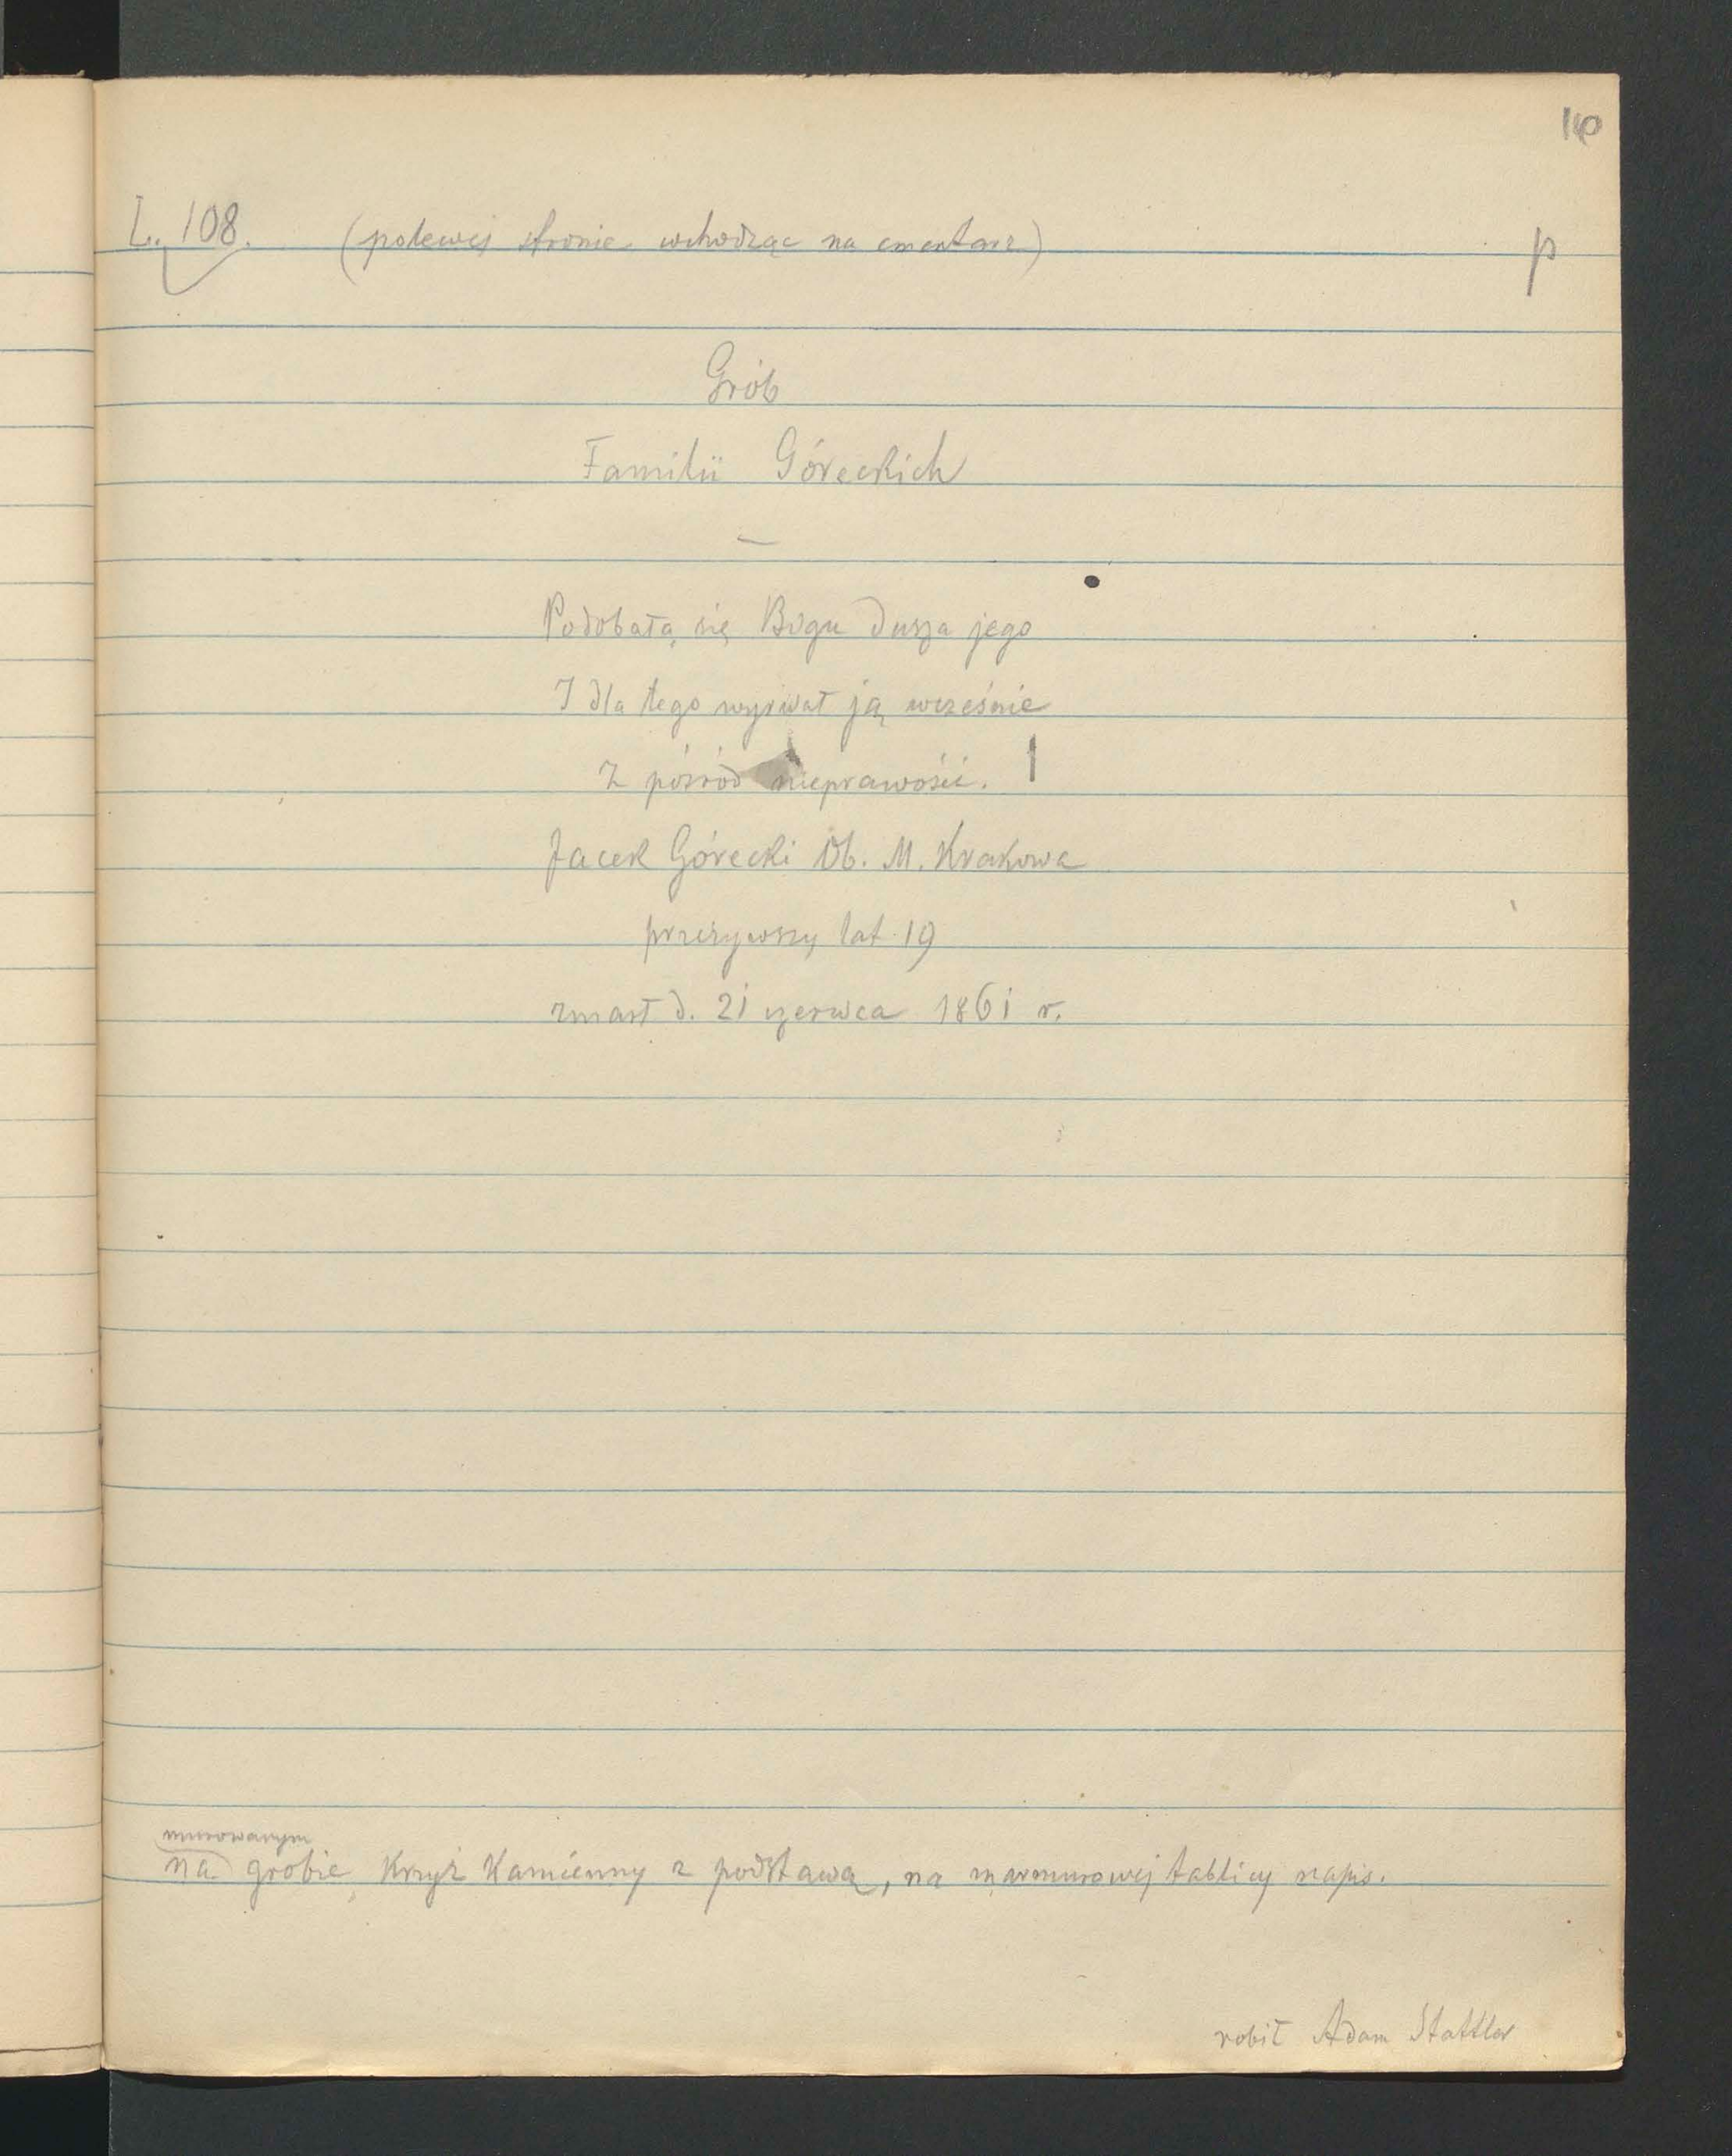 L. 108. (polewej stronie wchodząc na cmentarz) p
Grób
Familii Góreckich
—
Podobała się Bogu dusza jego
I dla tego wyrwał ją wcześnie
Z pośród nieprawości.
Jacek Górecki Ob. M. Krakowa
przeżywszy lat 19
zmarł d. 21 czerwca 1861 r.
murowanym
na grobie, Krzyż Kamienny z podstawą, na marmurowej tablicy napis.
robił Adam Stattler